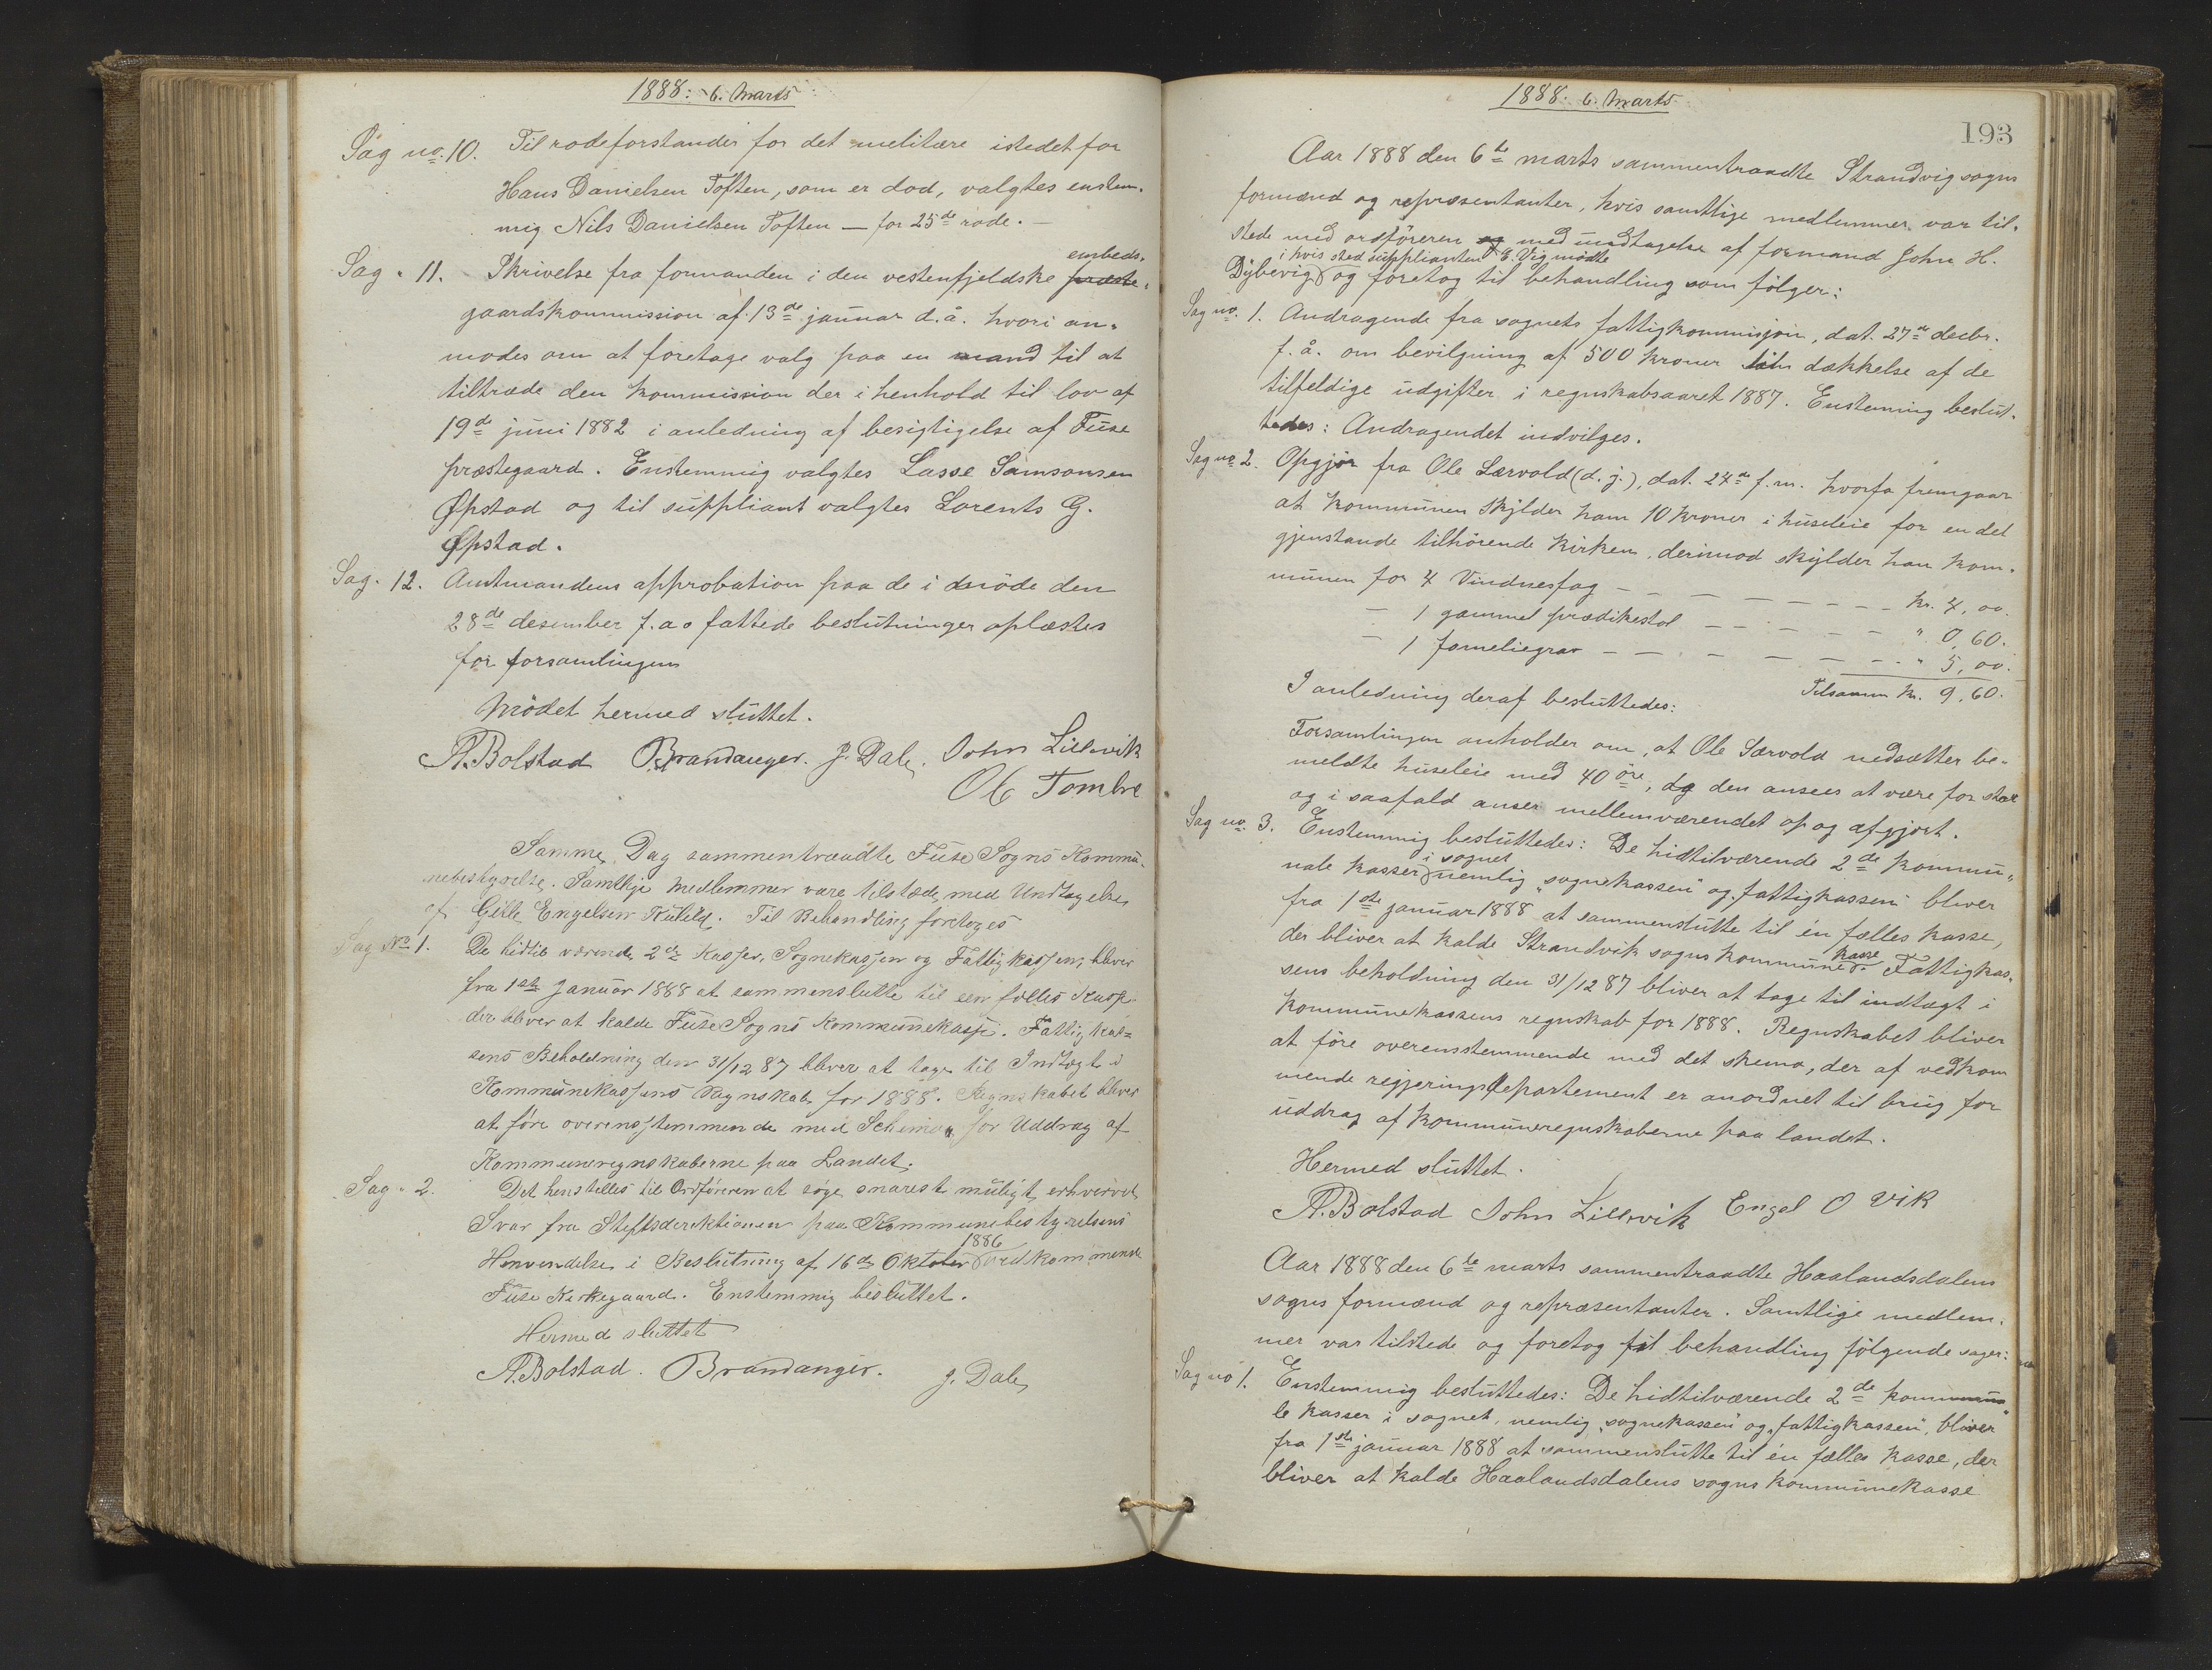 1888: 6. Marts
Sag no. 10. Til rodeforstander for det melitære istedet for
Hans Danielsen Toften, som er dod, valgtes enstem-
mig Nils Danielsen Toften — for 25de rode. —
embeds-
Sag " 11. Skrivelse fra formanden i den vestenfjeldske præste-
gaardskommission af 13de januar d.å. hvori an-
modes om at foretage valg paa en mand til at
tiltræde den kommission der i henhold til lov af
19de juni 1882 i anledning af besigtigelse af Fuse
præstegaard. Enstemmig valgtes Lasse Samsonsen
Øpstad og til suppliant valgtes Lorents G.
Øpstad.
Sag " 12. Amtmandens approbation paa de i møde den
28de desember f.a. fattede beslutninger oplæstes
for forsamlingen
Mödet hermed sluttet.
A. Bolstad Brandanger. J. Dale. John Lillevik
Ole Tombre
Samme Dag sammentraadte Fuse Sogns Kommu-
nebestyrelse. Samtlige Medlemmer vare tilstæde, med Undtagelse
af Gitle Engelsen Kuhild. Til Behandling foretoges
Sag No 1. De hidtil værende 2de Kasser, Sognekassen og Fattigkassen, bliver
fra 1ste Januar 1888 at sammenslutte til een fælles Kasse
der bliver at kalde Fuse Sogns Kommunekasse. Fattigkas-
sens Beholdning den 31/12 87 bliver at tage til Indtægt i
Kommunekassens Regnskab for 1888. Regnskabet bliver
at føre overensstemmende med Schema for Uddrag af
Kommuneregnskaberne paa Landet.
Sag " 2. Det henstilles til Ordføreren at søge snarest muligt erhvervet
Svar fra Stiftsdirektionen paa Kommunebestyrelsens
1886
Henvendelse i Beslutning af 16de Oktober vedkommende
Fuse Kirkegaard. Enstemmig besluttet.
Hermed sluttet
A. Bolstad. Brandanger. J. Dale
1888: 6. Marts
193
Aar 1888 den 6te marts sammentraadte Strandvig sogns
formænd og repræsentanter, hvis samtlige medlemmer var til-
stede med ordføreren og med undtagelse af formand John H.
i hvis sted supplianten E. Vig mødte
Dybevig og foretog til behandling som følger:
Sag no. 1. Andragende fra sognets fattigkommisjon, dat. 27de decbr.
f.å. om bevilgning af 500 kroner til dækkelse af de
tilfeldige udgifter i regnskabsaaret 1887. Enstemmig beslut-
tedes: Andragendet indvilges.
Sag no 2. Opgjør fra Ole Særvold (d.y.), dat. 24de f.m. hvorfa fremgaar
at kommunen skylder ham 10 kroner i huseleie for en del
gjenstande tilhørende kirken, derimod skylder han kom-
munen for 4 Vinduesfag — — — — — — — kr. 4,00.
— 1 gammel prædikestol — — — — — " 0,60.
— 1 fameliegrav — — — — — — — " 5,00.
Tilsamm kr. 9,60.
I anledning deraf besluttedes:
Forsamlingen anholder om, at Ole Særvold nedsætter be-
meldte huseleie med 40 öre, da den ansees at være for stor
og i saafald anser mellemværendet op og afgjort.
Sag no. 3. Enstemmig besluttedes: De hidtilværende 2de kommu-
i sognet
nale kasser nemlig "sognekassen" og "fattigkassen" bliver
fra 1ste januar 1888 at sammenslutte til én fælles kasse,
der bliver at kalde Strandvik sogns kommune
kasse
. Fattigkas-
sens beholdning den 31/12 87 bliver at tage til indtægt i
kommunekassens regnskab for 1888. Regnskabet bliver
at føre overensstemmende med det skema, der af vedkom
mende regjeringsdepartement er anordnet til brug for
uddrag af kommuneregnskaberne paa landet.
Hermed sluttet.
A. Bolstad John Lillevik Engel O Vik
Aar 1888 den 6te marts sammentraadte Haalandsdalens
sogns formænd og repræsentanter. Samtlige medlem-
mer var tilstede og foretog til behandling følgende sager:
Sag no 1. Enstemmig besluttedes: De hidtilværende 2de kommuna-
le kasser i sognet, nemlig "sognekassen" og "fattigkassen", bliver
fra 1ste januar 1888 at sammenslutte til én fælles kasse, der
bliver at kalde Haalandsdalens sogns kommunekasse